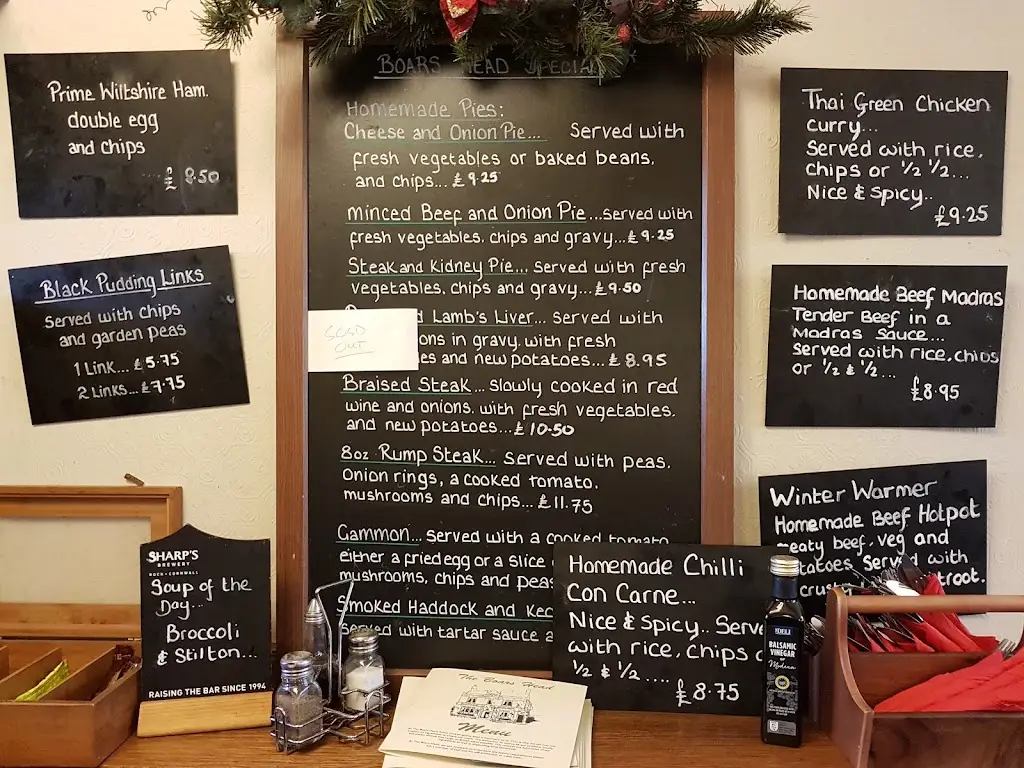 Prime Wiltshire Ham.
double egg
and chips
£ 8.50
Black Pudding Links
Served with chips
and garden peas
1 Link... £5.75
2 Links... £7.75
SHARP'S
BREWERY
ROCK · CORNWALL
Soup of the
Day...
Broccoli
& Stilton...
RAISING THE BAR SINCE 1994
BOARS HEAD SPECIALS
Homemade Pies:
Cheese and Onion Pie... Served with
fresh vegetables or baked beans.
and chips... £9.25
Minced Beef and Onion Pie...served with
fresh vegetables. chips and gravy...£9.25
Steak and Kidney Pie... Served with fresh
vegetables. chips and gravy...£9.50
Lamb's Liver... served with
ons in gravy. with fresh
es and new potatoes...£8.95
SOLD
OUT
Braised Steak... slowly cooked in red
wine and onions. with fresh vegetables.
and new potatoes...£10.50
8oz Rump Steak... Served with peas.
Onion rings, a cooked tomato.
mushrooms and chips...£11.75
Gammon... served with a cooked tomato
either a fried egg or a slice
mushrooms, chips and peas
Smoked Haddock and
Served with tartar sauce a
Homemade Chilli
Con Carne...
Nice & Spicy.. Serve
with rice, chips o
½ & ½ ....
£8.75
The Boars Head
Menu
Thai Green Chicken
curry...
Served with rice.
chips or ½ ½...
Nice & Spicy..
£9.25
Homemade Beef Madras
Tender Beef in a
Madras Sauce...
Served with rice.chips
or ½ & ½...
£8.95
Winter Warmer
Homemade Beef Hotpot
meaty beef, veg and
Served with
crusty
BALSAMIC
VINEGAR
of Modena